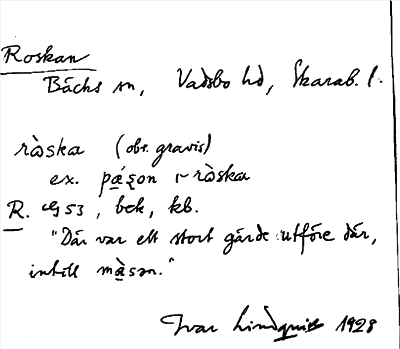 Roskan
Bäcks sn, Vadsbo hd, Skarab. l.
rɷ̀ska (obs. gravis)
ex. pǻʂon rɷ̀ska
R. eg 53, bek, kb.
"Där var ett stort gärde utföre där,
intill mà̤sən."
Ivar Lindquist 1928